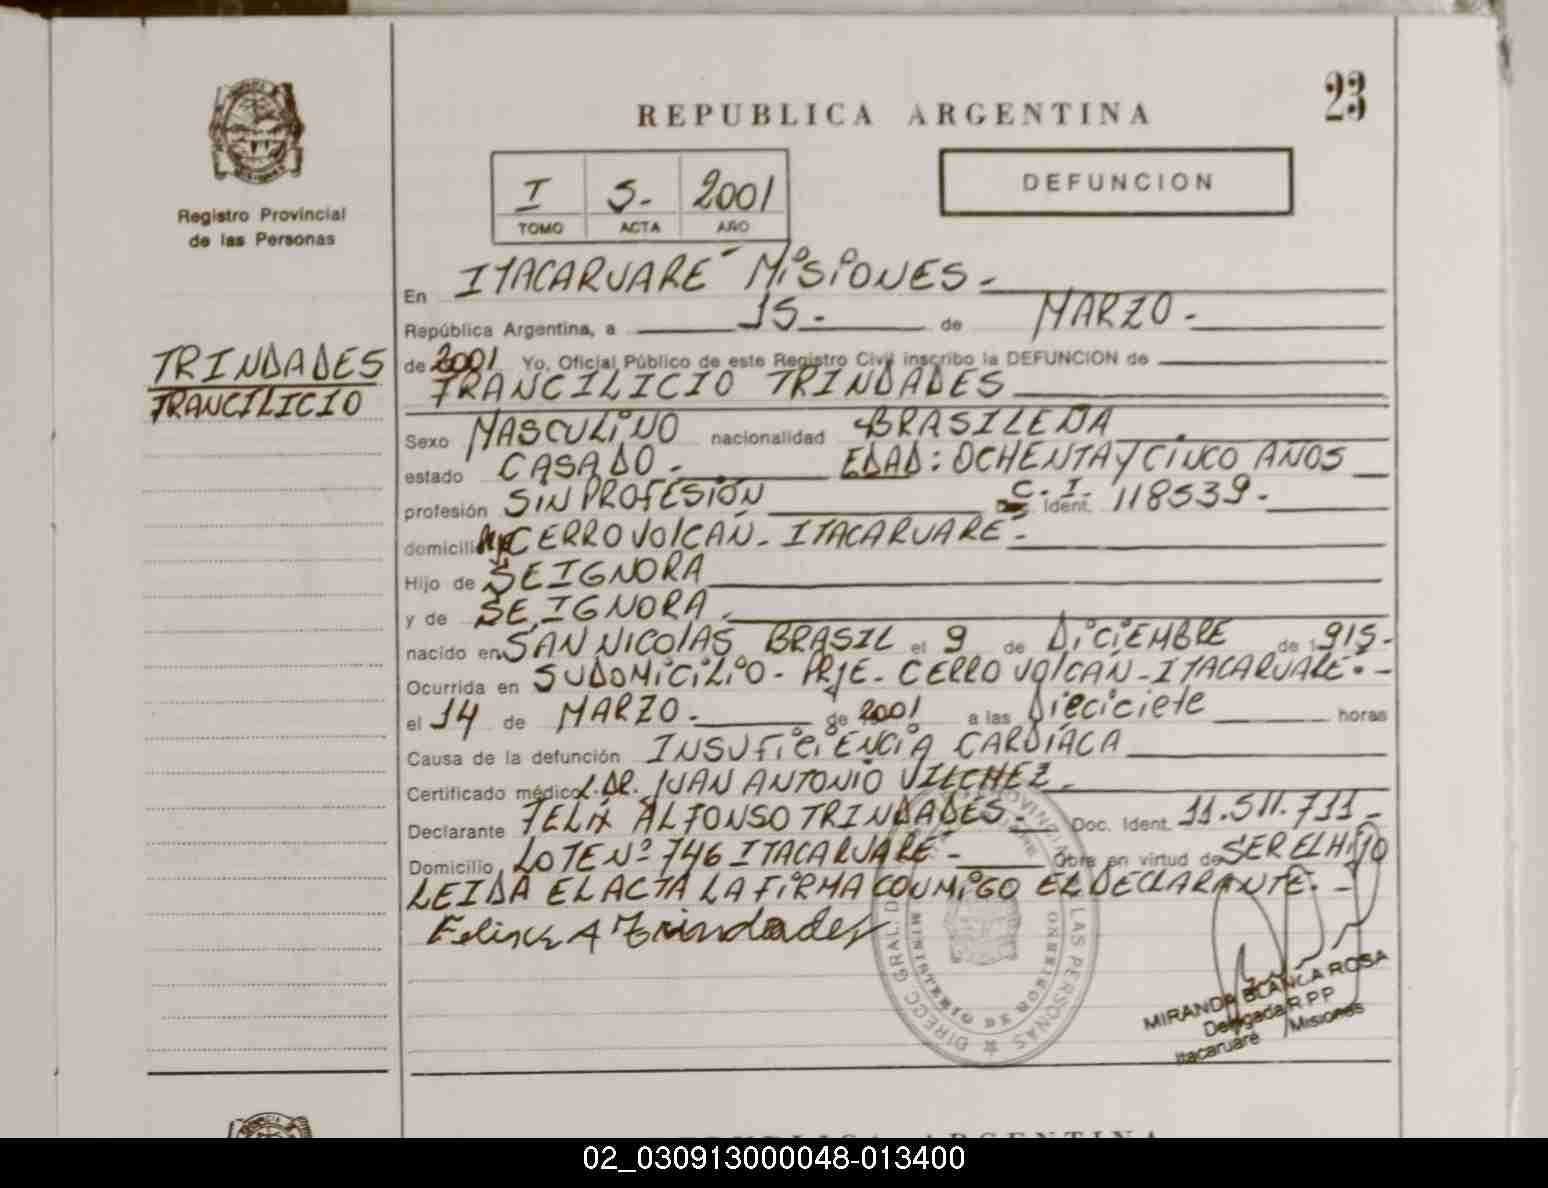 23
REPUBLICA ARGENTINA
DEFUNCION
I 5.- 2001
TOMO ACTA AÑO
Registro Provincial
de las Personas
TRINDADES
FRANCILICIO
En ITACARUARE MISIONES.-
República Argentina, a 15.- de MARZO.-
de 2001 Yo, Oficial Público de este Registro Civil inscribo la DEFUNCION de
FRANCILICIO TRINDADES
Sexo MASCULINO nacionalidad BRASILEÑA
estado CASADO.- EDAD: OCHENTA Y CINCO AÑOS
profesión SIN PROFESIÓN C.I. Ident. 118539.-
domicilio CERRO VOLCAN.- ITACARUARE.-
Hijo de SE IGNORA
y de SE IGNORA.
nacido en SAN NICOLAS BRASIL el 9 de DICIEMBRE de 1915.-
Ocurrida en SU DOMICILIO- PRJE- CERRO VOLCAN-ITACARUARE.-
el 14 de MARZO.- de 2001 a las Dieciciete horas
Causa de la defunción INSUFICIENCIA CARDIACA
Certificado médico DR. JUAN ANTONIO VILCHEZ.-
Declarante FELIX ALFONSO TRINDADES.- Doc. Ident. 11.511.711.-
Domicilio LOTE Nº 746 ITACARUARE.- Obra en virtud de SER EL HIJO
LEIDA EL ACTA LA FIRMA CONMIGO EL DECLARANTE.-
Felix A Trindades
DIRECC GRAL. DEL REG. PROVINCIAL DE LAS PERSONAS
MINISTERIO DE GOBIERNO
MIRANDA BLANCA ROSA
Delegada R.P.P
Itacaruaré Misiones
REPUBLICA ARGENTINA
02_030913000048-013400